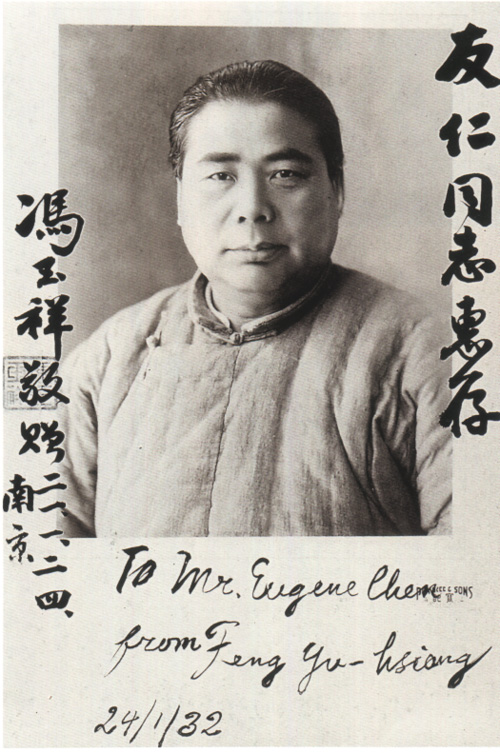 友仁同志惠存
馮玉祥敬贈
二一、一、二四、
南京
To Mr. Eugene Chen
from Feng Yu-hsiang
24/1/32
& SONS